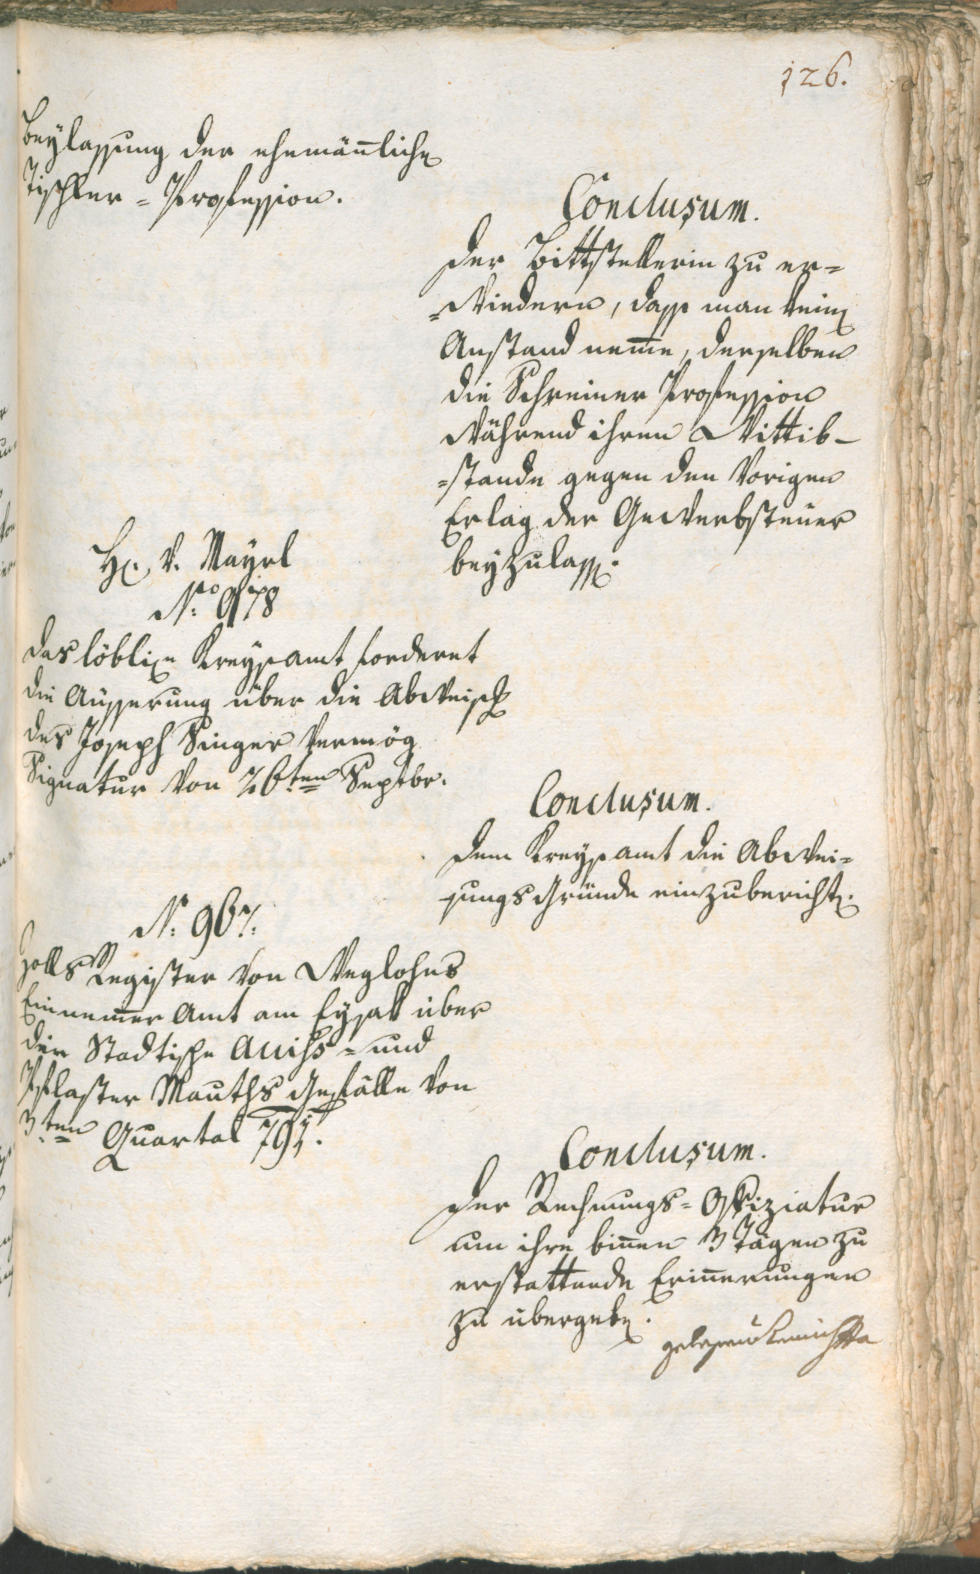 126.
Beÿlassung der ehemäñlichen
Tischler-Profession.
Conclusum.
Der Bittstellerin zu er-
-wiedern, dass man keinen
Anstand nem̄e, derselben
die Schreiner Profession
während ihrem Wittib-
-stande gegen den vorigen
Erlag der Gewerbsteuer
beyzulassen.
H. v. Mayrl
N.o 978
Das löbliche Kreysamt forderet
die Aüsserung über die Abweisung
des Joseph Singer vermög
Signatur von 26ten Septbr.
Conclusum.
Dem Kreysamt die Abwei-
sungs Gründe einzuberichten.
N. 967.
Zolls Register von Weglohns
Einnem̄er Amt am Eysak über
die Stadtische Aviss- und
Pflaster Mauths Gefälle von
3ten Quartal 791.
Conclusum.
Der Rechnungs-Offiziatur
um ihre biñen 3 Tägen zu
erstattende Eriñerungen
zu übergeben.